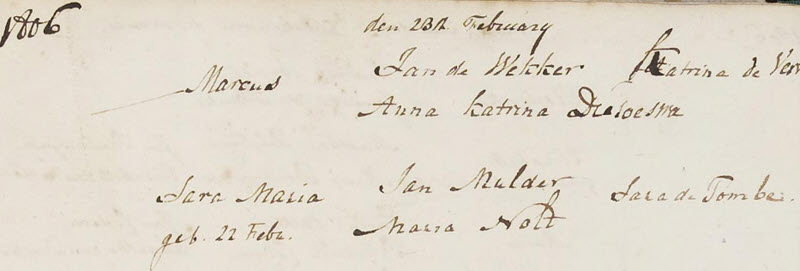 1806
den 23n February
Marcus Jan de Wekker Katrina de
Anna Katrina
Sara Maria Jan Mulder Sara de Tombe.
geb. 22 Febr. Maria Nolt